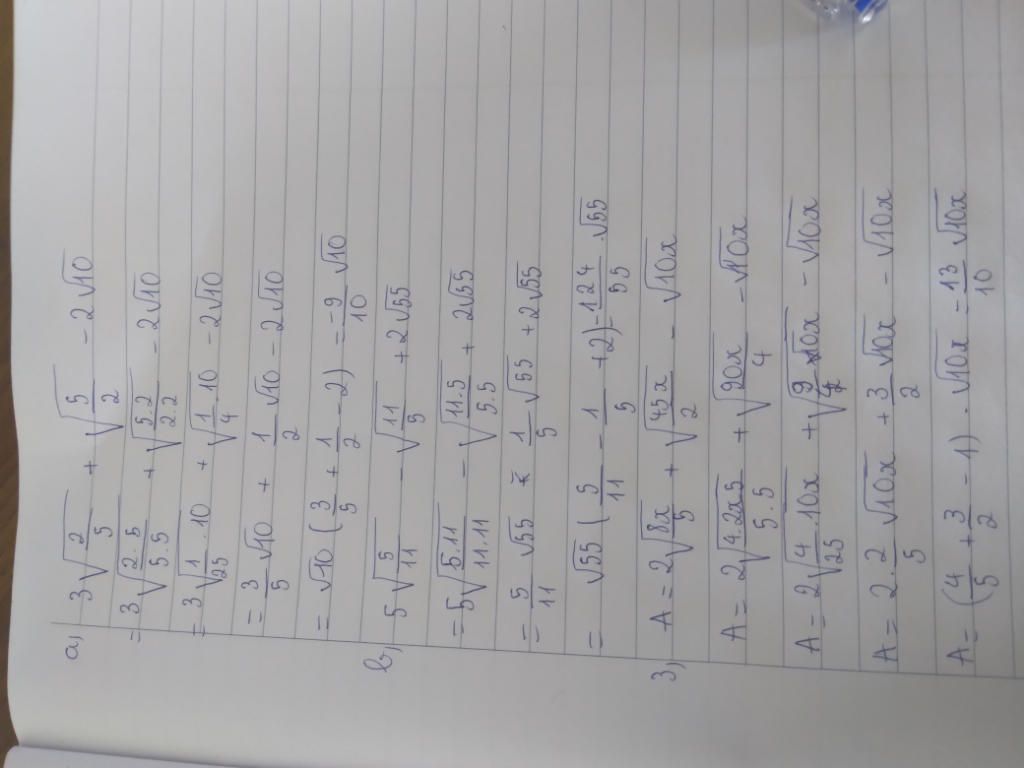 a, 3√(2/5) + √(5/2) - 2√10
= 3√(2.5/5.5) + √(5.2/2.2) - 2√10
= 3√(1/25 .10) + √(1/4 .10) - 2√10
= 3/5 √10 + 1/2 √10 - 2√10
= √10 (3/5 + 1/2 - 2) = -9/10 √10
b, 5√(5/11) - √(11/5) + 2√55
= 5√(5.11/11.11) - √(11.5/5.5) + 2√55
= 5/11 √55 - 1/5 √55 + 2√55
= √55 (5/11 - 1/5 + 2) - 124/55 .√55
3, A = 2√(8x/5) + √(45x/2) - √10x
A = 2√(4.2x5/5.5) + √(90x/4) - √10x
A = 2√(4/25 .10x) + √(9/4 .10x) - √10x
A = 2.2/5 √10x + 3/2 √10x - √10x
A = (4/5 + 3/2 - 1) . √10x = 13/10 √10x